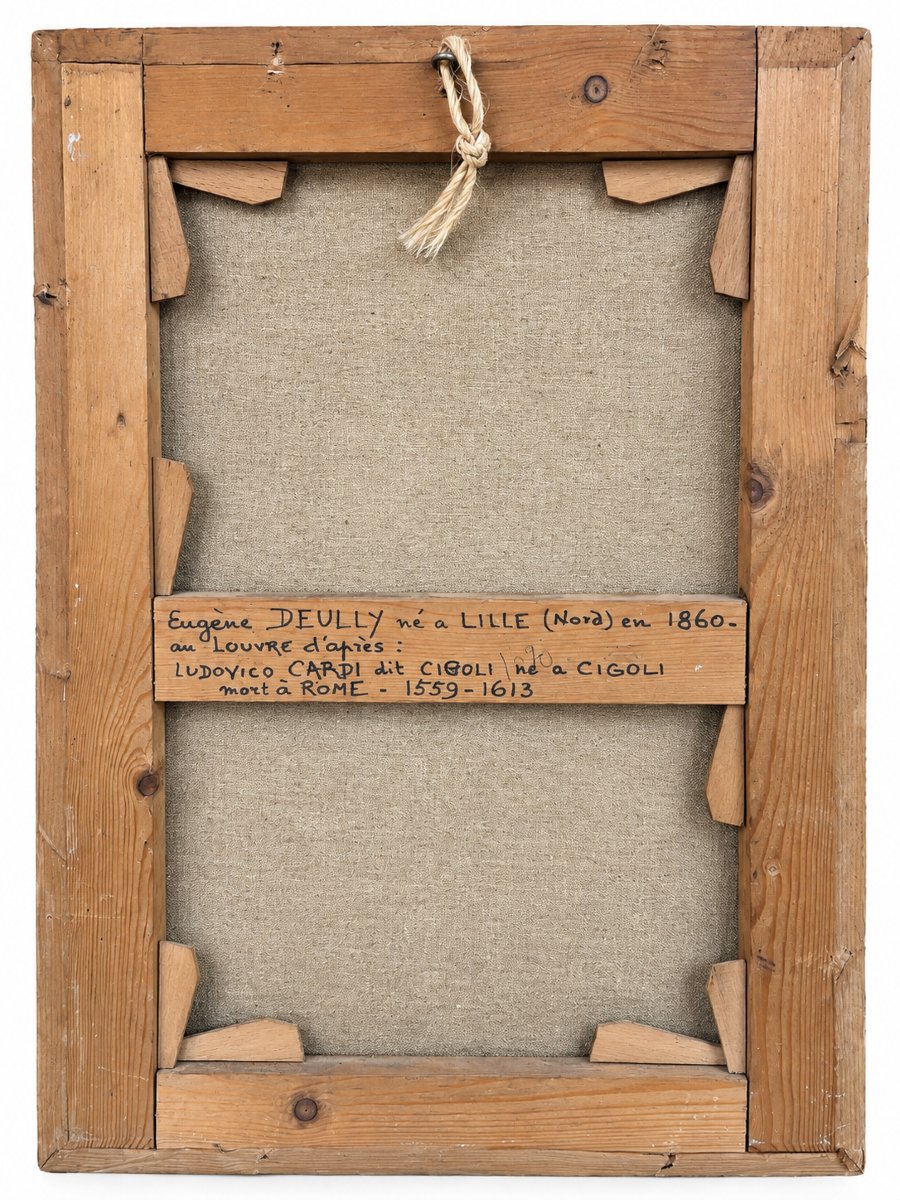 Eugène DEULLY né a LILLE (Nord) en 1860-
au LOUVRE d'après :
LUDOVICO CARDI dit CIGOLI né a CIGOLI
mort à ROME - 1559-1613